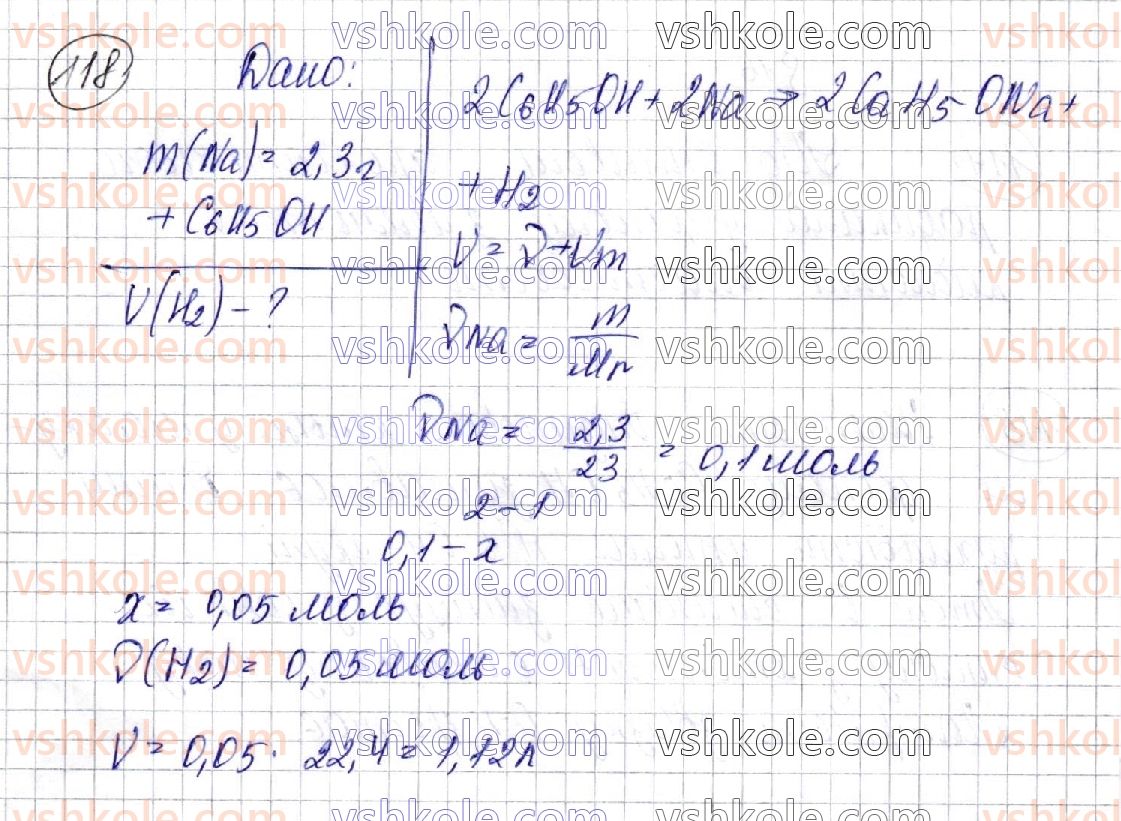 118
Дано:
m(Na) = 2,3г
+ C6H5OH
V(H2) - ?
2C6H5OH + 2Na → 2C6H5ONa +
+ H2
V = ν * Vm
νNa = m/Mr
νNa = 2,3/23 = 0,1 моль
2 - 1
0,1 - x
x = 0,05 моль
ν(H2) = 0,05 моль
V = 0,05 · 22,4 = 1,12л
vshkole.com